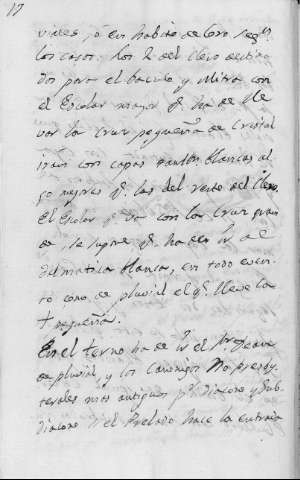 17
viales, ô en habito de Coro seg.n
los casos. Los 2 del Clero destina
dos para el baculo y Mitra con
el Escolar mayor q.e ha de lle
var la Cruz pequeña de Cristal
irán con capas tambn blancas al
go mejores q.e las del resto del Clero.
El Escolar q.e va con la Cruz gran
de, se supone q.e ha de ir de
Dalmatica blanca, en todo even
to como de pluvial el q.e lleve la
† pequeña.
En el terno ha de ir el Preste
de pluvial, y los Canonigos No presby
terales mas antiguos p.a diacono y Sub
diacono si el Prelado hace la entrada